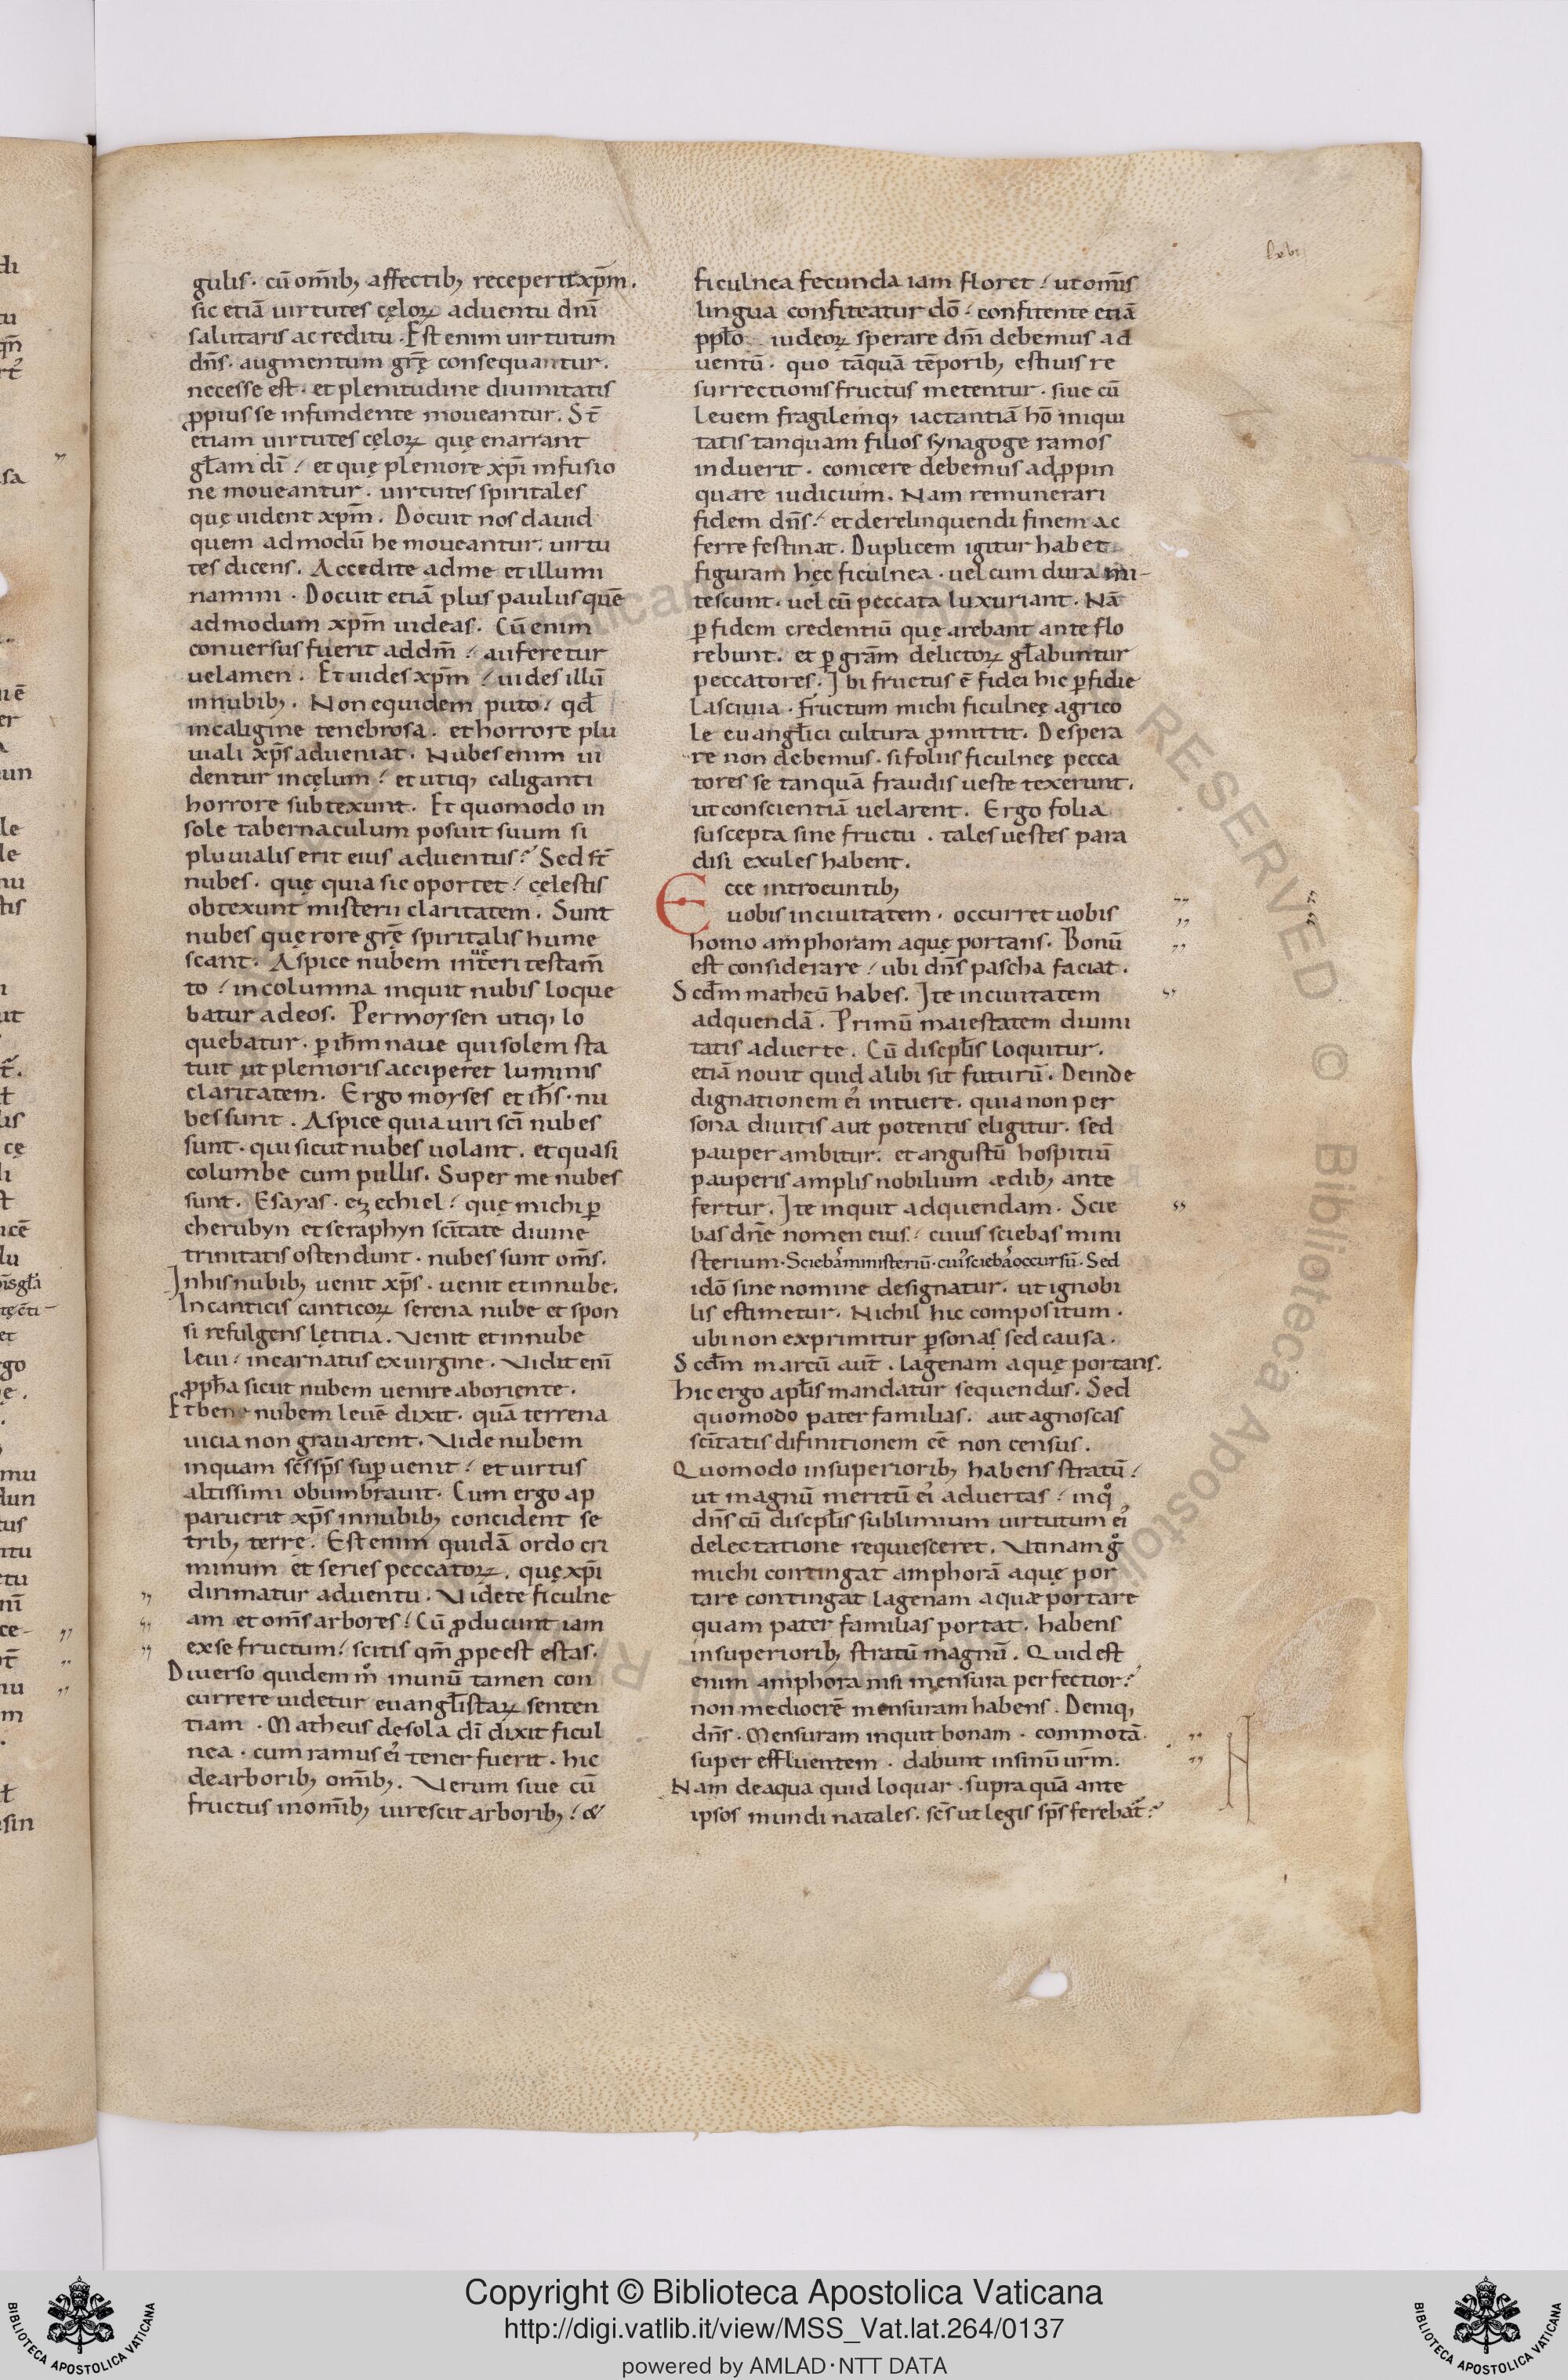 gulis. cū om̄ib; affectib; receperit xp̄m.
sic etiā uirtutes cęloꝝ aduentu dn̄i
salutaris ac reditu. Est enim uirtutum
dn̄s. augmentum grę̄ consequantur.
necesse est. et plenitudine diuinitatis
ꝓpius se infundente moueantur. St̄
etiam uirtutes cęloꝝ quę enarrant
gl̄am dī. et quę pleniore xp̄i infusio
ne moueantur. uirtutes spiritales
quę uident xp̄m. Docuit nos dauid
quem admodū he moueantur. uirtu
tes dicens. Accedite ad me et illumi
namini. Docuit etiā plus paulus quē
admodum xp̄m uideas. Cū enim
conuersus fuerit ad dm̄. auferetur
uelamen. Et uides xp̄m. uides illū
in nubib;. Non equidem puto. qd̄
in caligine tenebrosa. et horrore plu
uiali xp̄s adueniat. Nubes enim ui
dentur in cęlum. et utiq; caliganti
horrore subtexunt. Et quomodo in
sole tabernaculum posuit suum si
pluuialis erit eius aduentus? Sed st̄
nubes. quę quia sic oportet. cęlestis
obtexunt misterii claritatem. Sunt
nubes quę rore grę̄ spiritalis hume
scant. Aspice nubem in ueteri testam̄
to. in columna inquit nubis loque
batur ad eos. Per moysen utiq; lo
quebatur. ꝑ ih̄m naue qui solem sta
tuit ut plenioris acciperet luminis
claritatem. Ergo moyses et ih̄s. nu
bes sunt. Aspice quia uiri sc̄i nubes
sunt. qui sicut nubes uolant. et quasi
columbe cum pullis. Super me nubes
sunt. Esayas. ezechiel. quę michi ꝑ
cherubyn et seraphyn sc̄itate diuine
trinitatis ostendunt. nubes sunt om̄s.
In his nubib; uenit xp̄s. uenit et in nube.
In canticis canticoꝝ serena nube et spon
si refulgens lętitia. Venit et in nube
leui. incarnatus ex uirgine. Vidit eni
ꝓph̄a sicut nubem uenire ab oriente.
Et bene nubem leuē dixit. quā terrena
uicia non grauarent. Vide nubem
inquam sc̄s sp̄s suꝑuenit. et uirtus
altissimi obumbrauit. Cum ergo ap
paruerit xp̄s in nubib; concident se
trib; terre. Est enim quidā ordo cri
minum et series peccatoꝝ. quę xp̄i
dirimatur aduentu. Videte ficulne
am et om̄s arbores. Cū ꝓducunt iam
ex se fructum. scitis qm̄ ꝓpe est estas.
Diuerso quidem m̊ in unū tamen con
currere uidetur euangl̄istaꝝ senten
tiam. Matheus de sola dī dixit ficul
nea. cum ramus ei᾽ tener fuerit. hic
de arborib; om̄ib;. Verum siue cū
fructus in om̄ib; uirescit arborib;. &
ficulnea fecunda iam floret. ut om̄is
lingua confiteatur dō. confitente etiā
ppl̄o iudeoꝝ sperare dn̄i debemus ad
uentū. quo tāquā tēporib; estiuis re
surrectionis fructus metentur. siue cū
leuem fragilemq; iactantiā hō iniqui
tatis tanquam filios synagoge ramos
induerit. conicere debemus adꝓpin
quare iudicium. Nam remunerari
fidem dn̄s. et derelinquendi finem ac
ferre festinat. Duplicem igitur habet
figuram hęc ficulnea. uel cum dura mi-
tescunt. uel cū peccata luxuriant. Nā
ꝑ fidem credentiū quę arebant ante flo
rebunt. et ꝑ grām delictoꝝ gl̄abuntur
peccatores. Ibi fructus ē fidei hic ꝑfidie
lasciuia. fructum michi ficulneę agrico
le euangl̄ici cultura ꝓmittit. Despera
re non debemus. si foliis ficulneę pecca
tores se tanquā fraudis ueste texerunt.
ut conscientiā uelarent. Ergo folia
suscepta sine fructu. tales uestes para
disi exules habent.
Ecce introeuntib;
uobis in ciuitatem. occurret uobis
homo amphoram aquę portans. Bonū
est considerare. ubi dn̄s pascha faciat.
Scd̄m matheū habes. Ite in ciuitatem
ad quendā. Primū maiestatem diuini
tatis aduerte. Cū discipl̄is loquitur.
etiā nouit quid alibi sit futurū. Deinde
dignationem ei᾽ intuere. quia non per
sona diuitis aut potentis eligitur. sed
pauper ambitur. et angustū hospitiū
pauperis amplis nobilium ædib; ante
fertur. Ite inquit ad quendam. Scie
bas dn̄e nomen eius. cuius sciebas mini
sterium. Sciebā ministeriū. cui᾽ sciebā occursū. Sed
idō sine nomine designatur. ut ignobi
lis estimetur. Nichil hic compositum.
ubi non exprimitur ꝑsonas sed causa.
Scd̄m marcū aut̄. lagenam aquę portans.
hic ergo apl̄is mandatur sequendus. Sed
quomodo pater familias. aut agnoscas
sc̄itatis difinitionem eē non census.
Quomodo in superiorib; habens stratū.
ut magnū meritū ei᾽ aduertas. in q̊
dn̄s cū discipl̄is sublimium uirtutum ei᾽
delectatione requiesceret. Vtinam g̊
michi contingat amphorā aquę por
tare contingat lagenam aquæ portare
quam pater familias portat. habens
in superiorib; stratū magnū. Quid est
enim amphora nisi mensura perfectior?
non mediocrē mensuram habens. Deniq;
dn̄s. Mensuram inquit bonam. commotā.
super effluentem. dabunt in sinū ur̄m.
Nam de aqua quid loquar. supra quā ante
ipsos mundi natales. sc̄s ut legis sp̄s ferebat᾽?
Copyright © Biblioteca Apostolica Vaticana
http://digi.vatlib.it/view/MSS_Vat.lat.264/0137
powered by AMLAD·NTT DATA
BIBLIOTECA APOSTOLICA VATICANA
BIBLIOTECA APOSTOLICA VATICANA